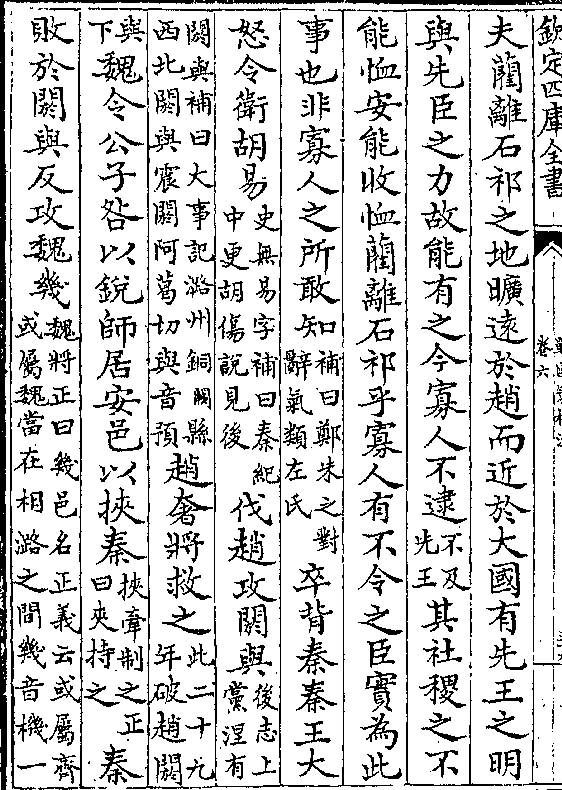 欽定四庫全書
卷六
夫藺離石祁之地曠遠於趙而近於大國有先王之明
與先臣之力故能有之今寡人不逮不及先王其社稷之不
能恤安能收恤藺離石祁乎寡人有不令之臣實為此
事也非寡人之所敢知補曰鄭朱之對辭氣類左氏卒背秦秦王大
怒令衛胡易史無易字補曰秦紀中更胡傷說見後伐趙攻閼與後志上黨涅有
閼與補曰大事記潞州銅閼縣西北閼與宸閼阿葛切與音預趙奢將救之此二十九年破趙閼
與下魏令公子咎以銳師居安邑以挾秦挾牽制之正曰夾持之秦
敗於閼與反攻魏幾魏將正曰幾邑名正義云或屬齊或屬魏當在相潞之間幾音機一